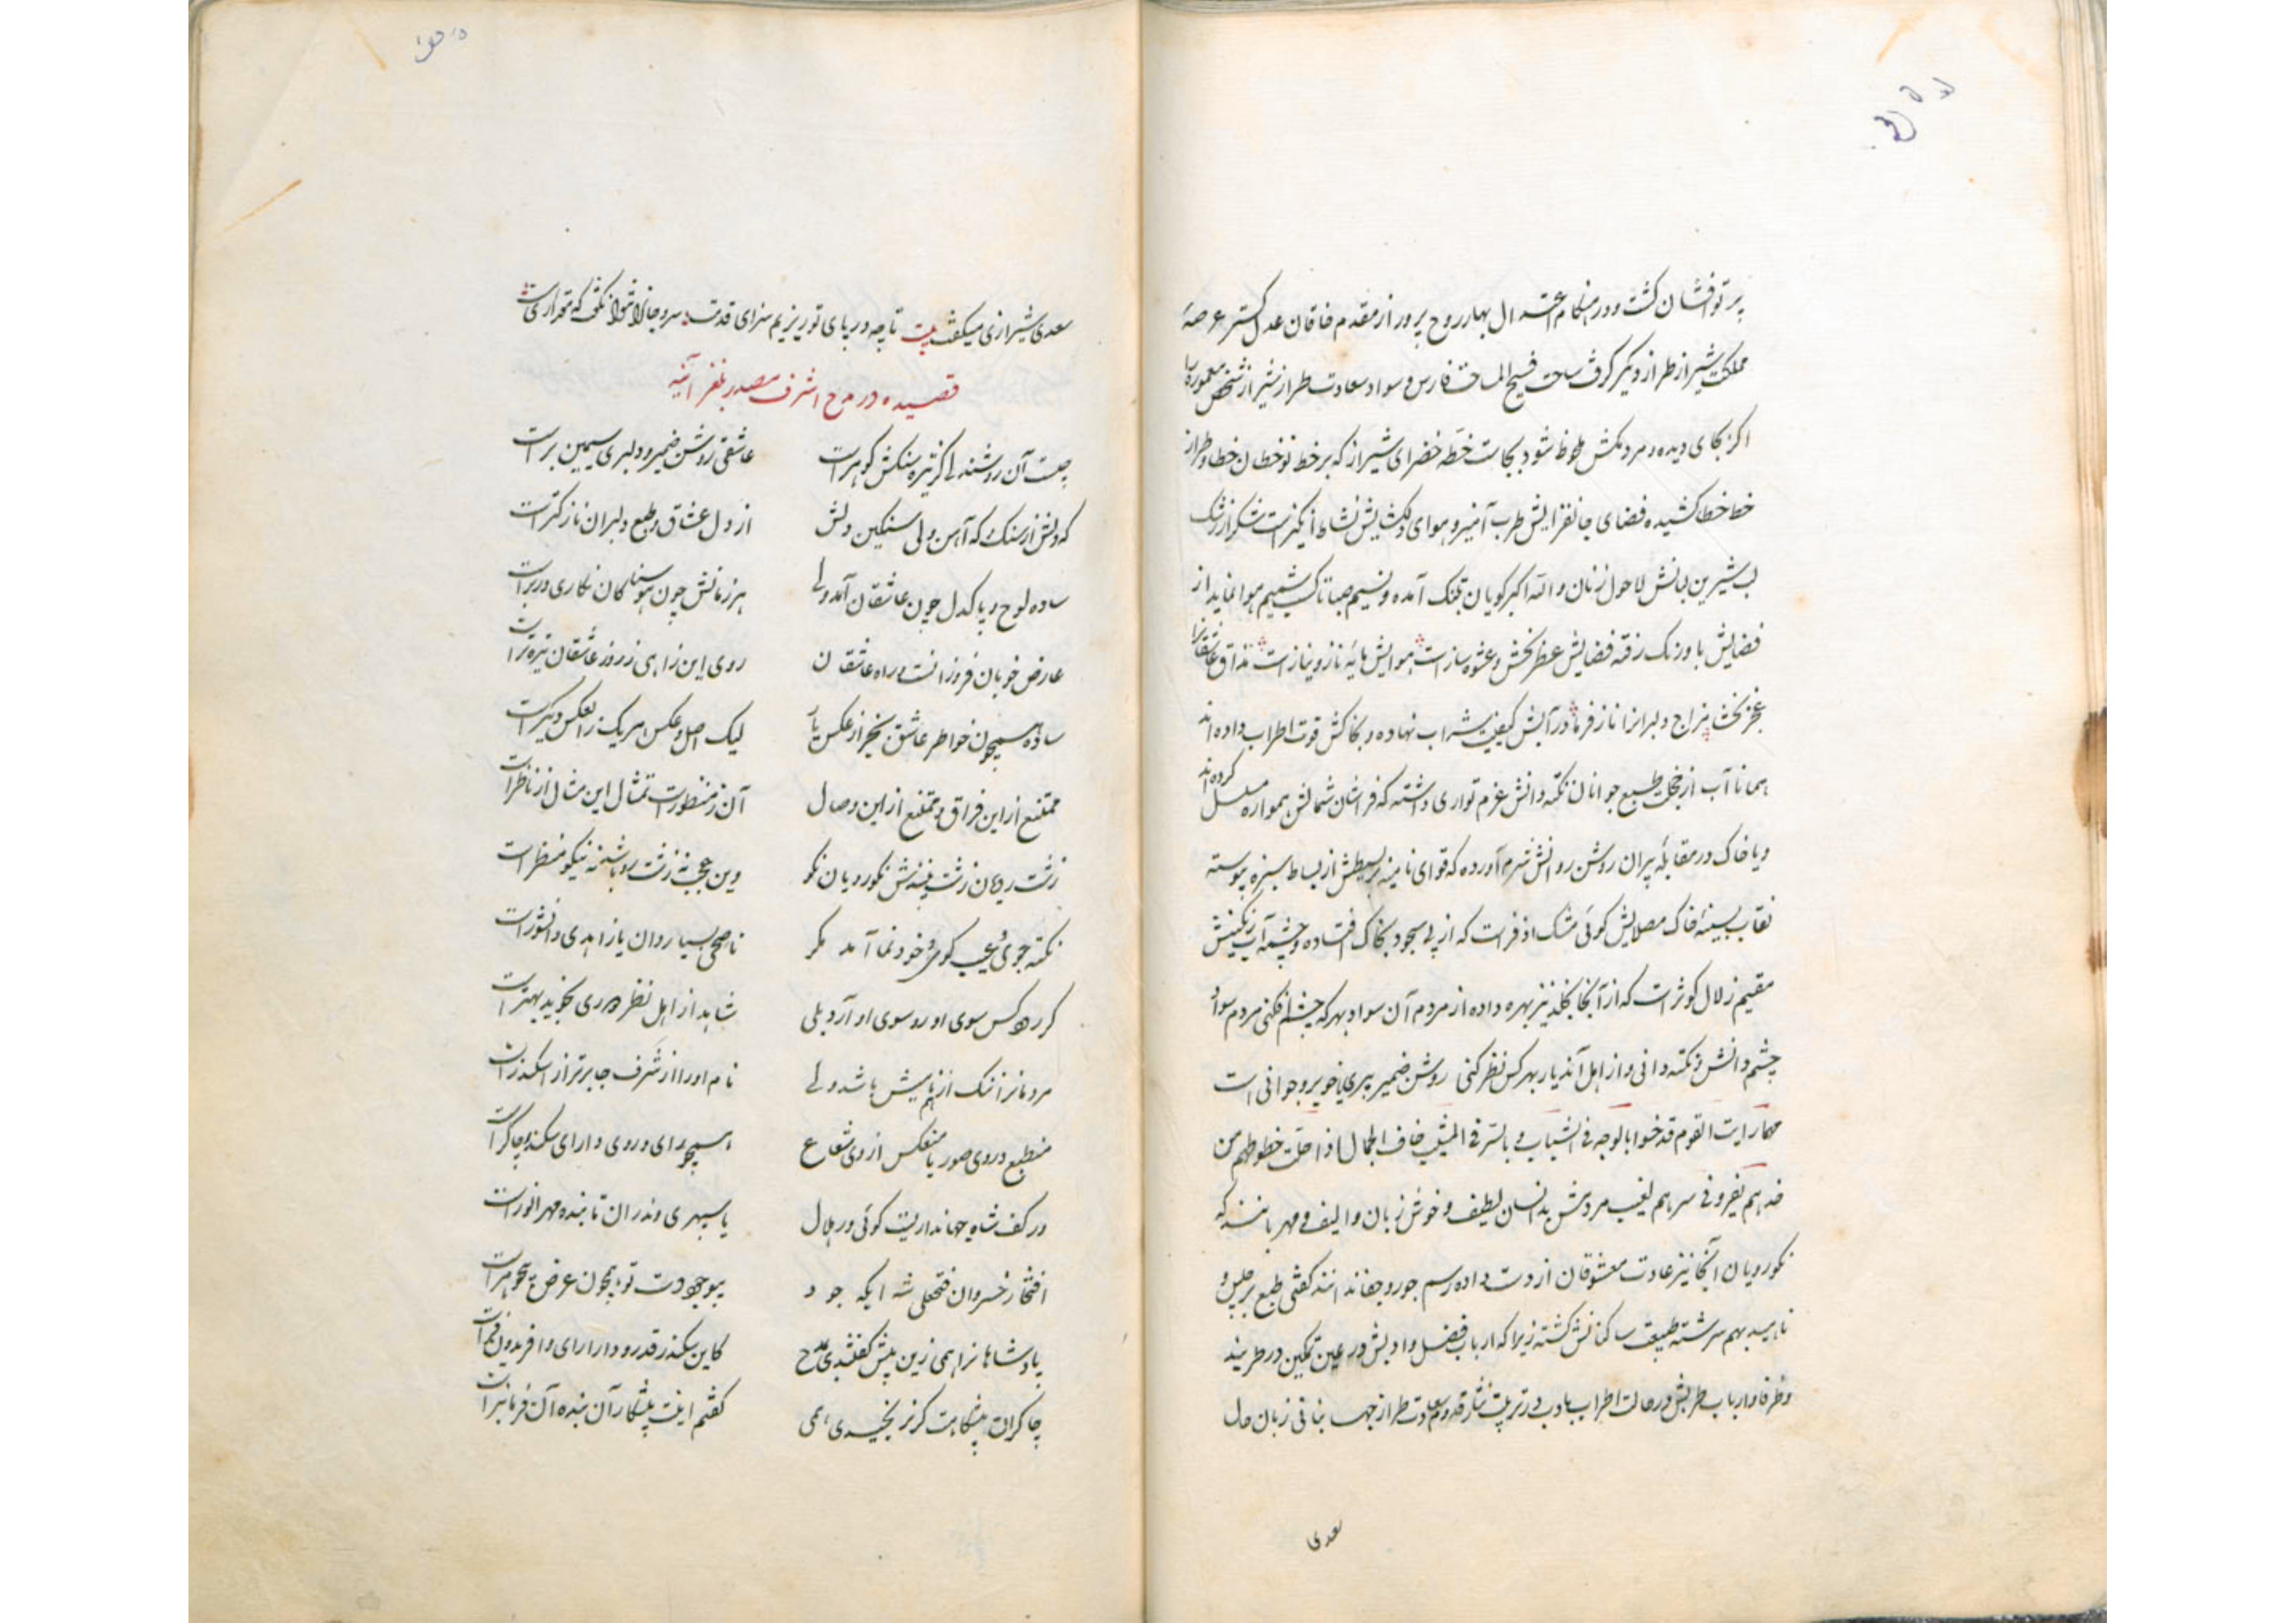 پرتوافشان کشت و در هنکام اعتدال بهار روح پرور از مقدم خاقان عدل کستر عرصهٔ
مملکت شیراز طراز دیکر کرفت ساحت فسیح المساحت فارس و سواد سعادت طراز شیراز شخص معموره را
اکر بجای دیده و مردمکش ملحوظ شود بجاست خطهٔ خضرای شیراز که بر خط نوخطان خطا و طراز
خط خطا کشیده فضای جانفزایش طرب آمیز و هوای دلکشایش نشاط انکیزست شکر از رشک
لب شیرین لبانش لاحول زنان و الله اکبر کویان بتنک آمده و نسیم صبا تا کسب شمیم هوا نماید از
فضایش با ورنک رفته فضایش عطربخش و عشوه سازست هوایش مایهٔ ناز و نیازست مذاق عاشقانرا
عجز بخشد مزاج دلبرانرا ناز فرماید در آبش کیفیت شراب نهاده و بخاکش قوت اطراب داده اند
همانا آب از خجلت طبع جوانان نکته دانش عزم تواری داشته که فراشان شمالش همواره مسلسل کرده اند
و یا خاک در مقابلهٔ پیران روشن روانش شرم آورده که قوای نامیه بر بسیطش از بساط سبزه پیوسته
نقاب بسته خاک مصلایش کوئی مشک اذفرست که از پی سجود بخاک افتاده و چشمهٔ آب رکنیش
مقیم زلال کوثرست که از آنجا بخلد نیز بهره داده از مردم آن سواد بهر که چشم افکنی مردم سواد
چشم دانش و نکته دانی و از اهل آندیار بهر کس نظر کنی روشن ضمیر پیری یا خوبرو جوانی است
مهما رایت القوم قد خوا بالوجه فی الشباب و بالستر فی المشیب خاف الجمال اذا خلت خطوطهم من
خدهم یفرو فی سرهم لغیب مردمش بدانسان لطیف و خوش زبان و الیف و مهربانند که
نکورویان آنجا نیز عادت معشوقان از دست داده رسم جور و جفا ندانند کفتی طبع برجیس و
ناهید بهم سرشته طبیعت ساکنانش کشته زیرا که ارباب فضل و ادبش در عین تمکین در طربند
و ظرفا و ارباب طربش در حالت اطراب با ادب و در ترتیب نثار قدوم سعادت طراز جهانبانی زبان حال
سعدی
سعدی شیرازی میکفت بیت تا چه در پای تو ریزیم سزای قدمت سر و جانرا نتوان کفت که مقداری هست
قصیده در مدح اشرف مصدر بلغز آئینه
چیست آن روشندلی کز تیره سنکش کوهرست عاشقی روشن ضمیر و دلبری سیمین برست
که دلش از سنک که آهن ولی سنکین دلش از دل عشاق و طبع دلبران نازکترست
ساده لوح و پاکدل چون عاشقان آمد ولی هر زمانش چون هوسناکان نکاری در برست
عارض خوبان فروزانست و راه عاشقان روی این را همی ز روز عاشقان تیره ترست
ساده همچون خاطر عاشق بجز از عکس یار لیک اصل و عکس هر یک را بعکس دیکرست
ممتنع از این فراق و متمتع از این وصال آن ز منظورست تمثال این مثال از ناظرست
زشت رویان زشت بینندش نکورویان نکو وین عجب نه زشت رو باشد نه نیکو منظرست
نکته جوی و عیب کوی و خودنما آمد مکر ناصحی بسیاردان یا زاهدی دانشورست
کر رود کس سوی او رو سوی او آرد بلی شاهد از اهل نظر دوری نجوید بهترست
مردمانرا ننک از نامیش باشد ولی نام او را از شرف جا برتر از اسکندرست
منطبع در وی صور یا منعکس از وی شعاع همچو رای و روی دارای سکندر چاکرست
در کف شاه جهاندار است کوئی در هلال یا سپهری و ندران تابنده مهر انورست
افتخار خسروان فتحعلی شه ایکه جود بیوجود دست تو همچون عرض بیجوهرست
پادشاها نراهمی زین پیش کفتندی مدح کاین سکندر قدر و دارارای و افریدون فرست
چاکران پیشکاهت کر نرنجیدی همی کفتم اینت پیشکار آن بنده آن فرمانبرست